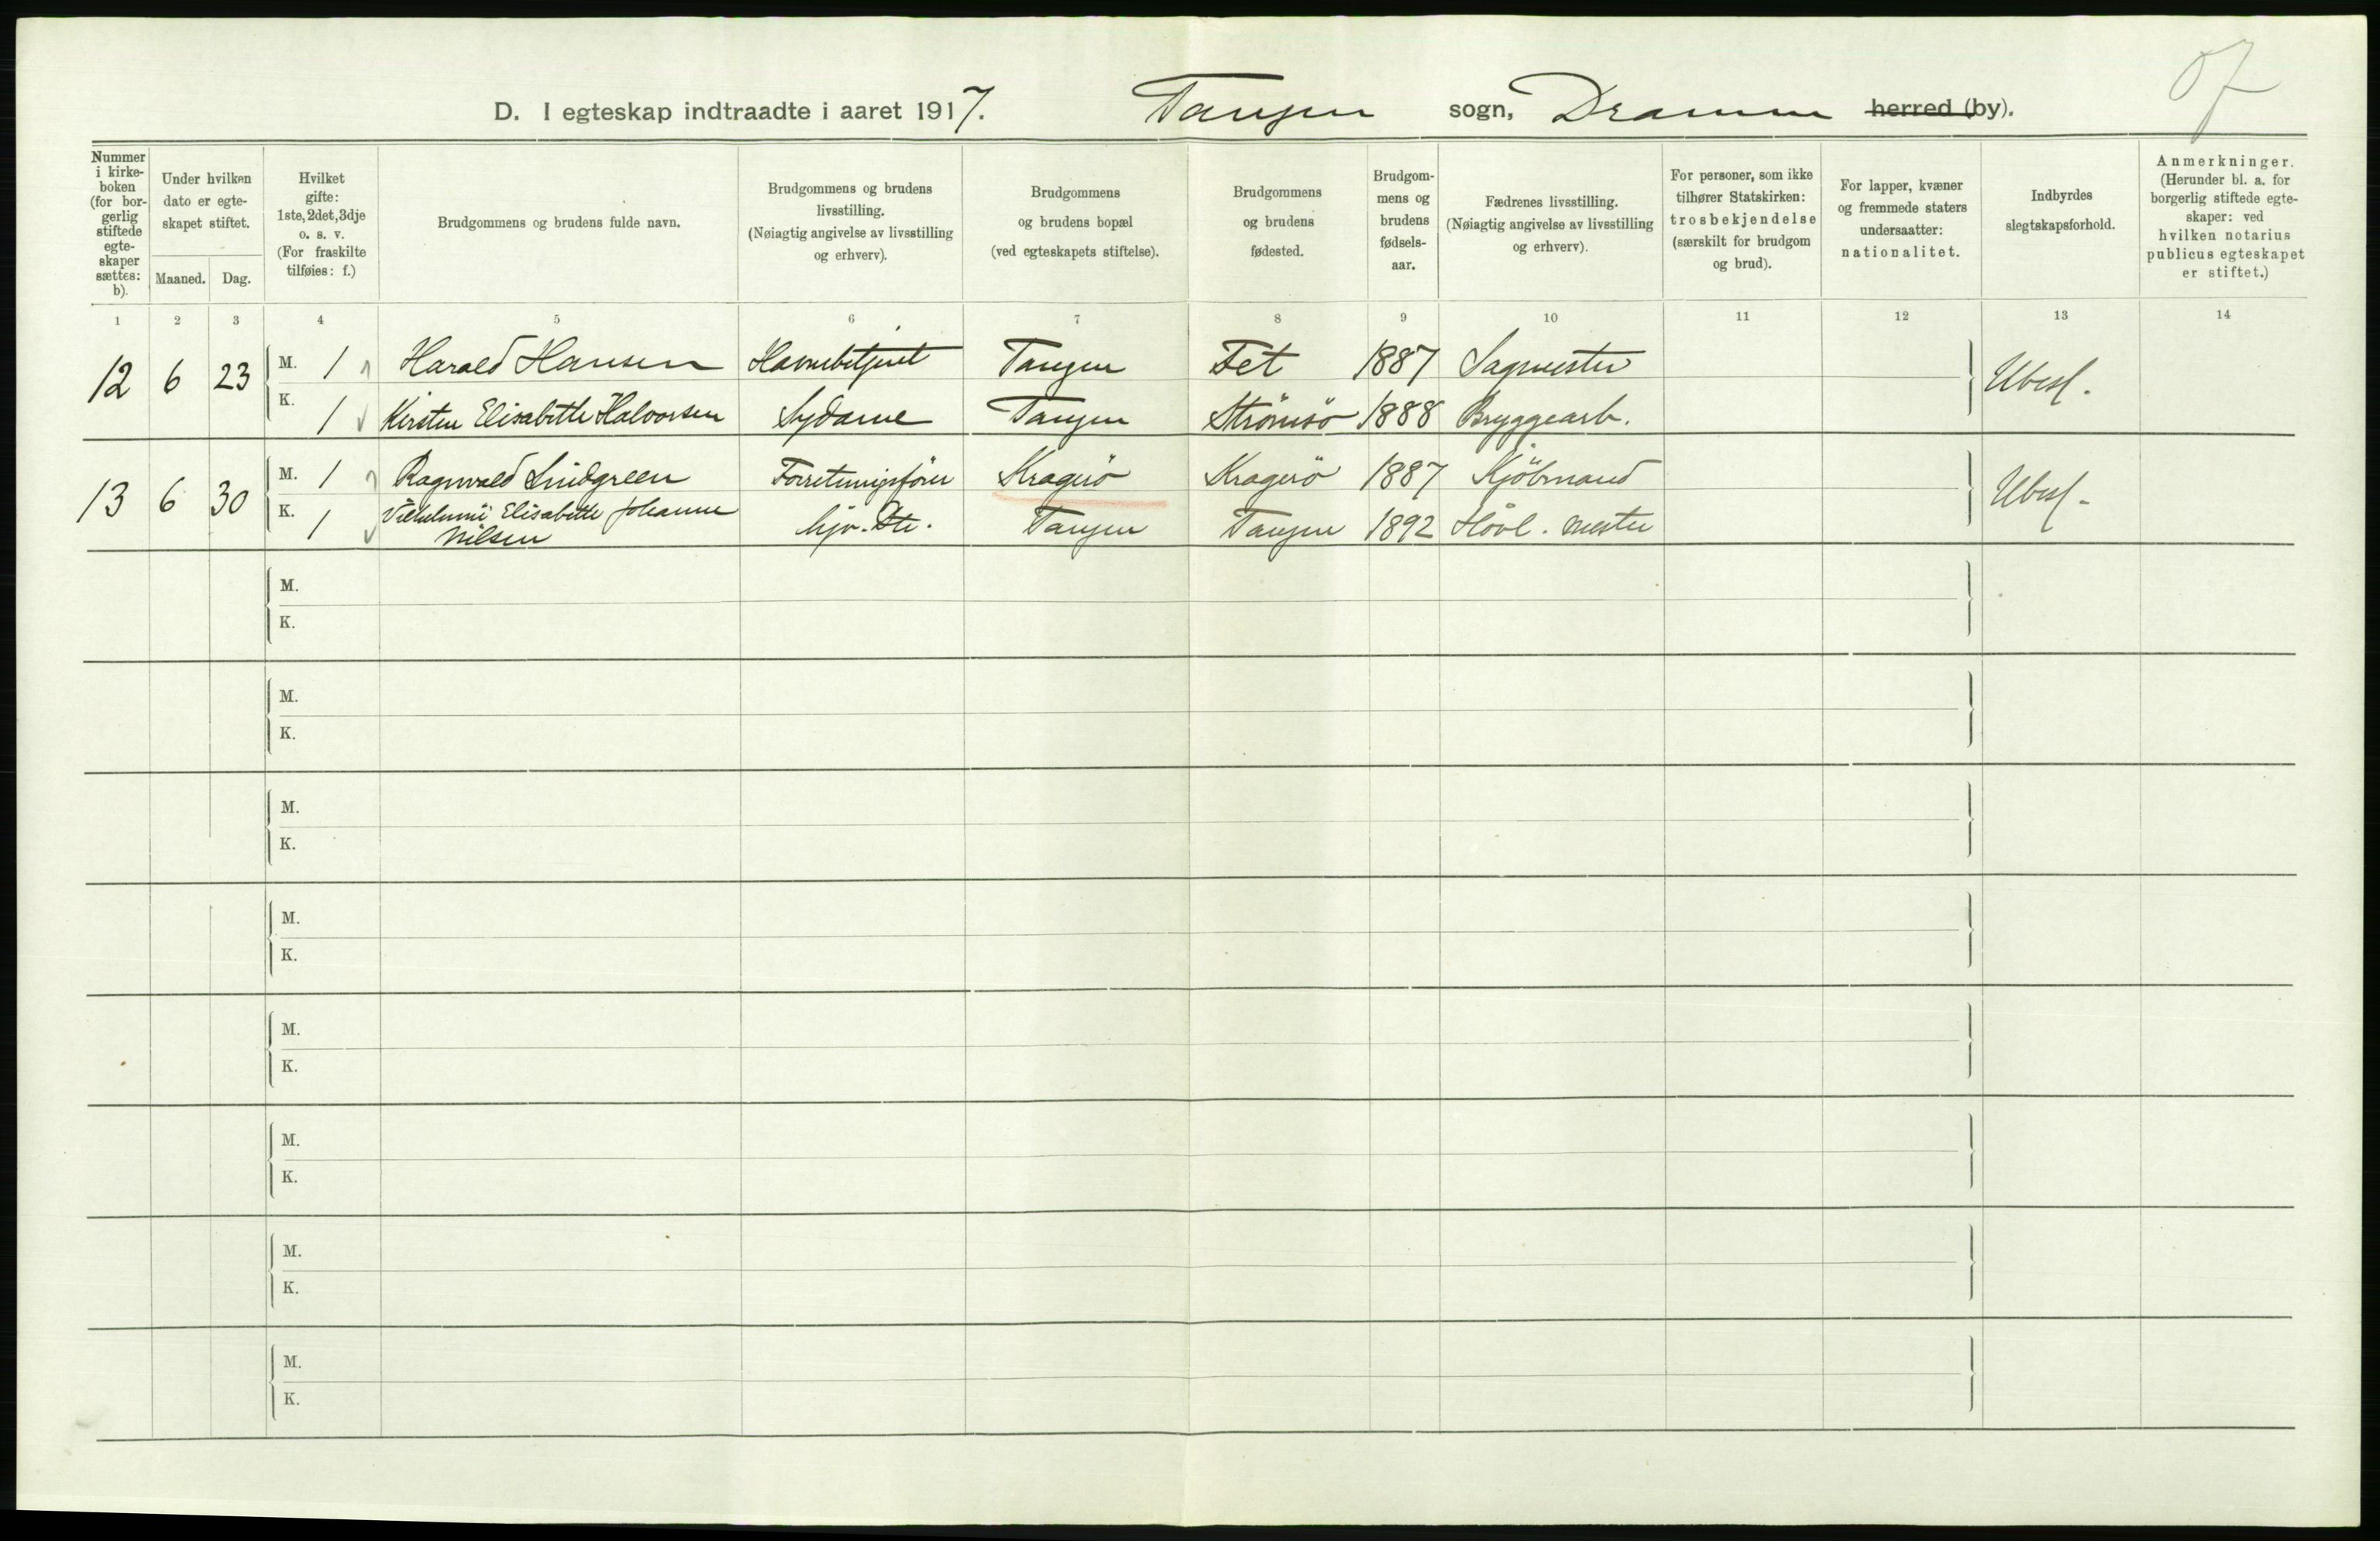 07
D. I egteskap indtraadte i aaret 1917. Tangen sogn, Drammen herred (by).
Nummer i kirkeboken (for borgerlig stiftede egteskaper sættes: b).
Under hvilken dato er egteskapet stiftet.
Maaned. Dag.
Hvilket gifte: 1ste, 2det, 3dje o. s. v. (For fraskilte tilføies: f.)
Brudgommens og brudens fulde navn.
Brudgommens og brudens livsstilling. (Nøiagtig angivelse av livsstilling og erhverv).
Brudgommens og brudens bopæl (ved egteskapets stiftelse).
Brudgommens og brudens fødested.
Brudgommens og brudens fødselsaar.
Fædrenes livsstilling. (Nøiagtig angivelse av livsstilling og erhverv).
For personer, som ikke tilhører Statskirken: trosbekjendelse (særskilt for brudgom og brud).
For lapper, kvæner og fremmede staters undersaatter: nationalitet.
Indbyrdes slegtskapsforhold.
Anmerkninger. (Herunder bl. a. for borgerlig stiftede egteskaper: ved hvilken notarius publicus egteskapet er stiftet.)
1 2 3 4 5 6 7 8 9 10 11 12 13 14
12 6 23 M. 1 Harald Hansen Havnebetjent Tangen Fet 1887 Sagmester Ubesl.
K. 1 Kirsten Elisabeth Halvorsen Sydame Tangen Strömsö 1888 Bryggearb.
13 6 30 M. 1 Ragnvald Lindgreen Forretningsförer Kragerö Kragerö 1887 Kjöbmand Ubesl.
K. 1 Vilhelmine Elisabeth Johanne Nilsen hjv. Dtr. Tangen Tangen 1892 Hövl. mester
M.
K.
M.
K.
M.
K.
M.
K.
M.
K.
M.
K.
M.
K.
M.
K.